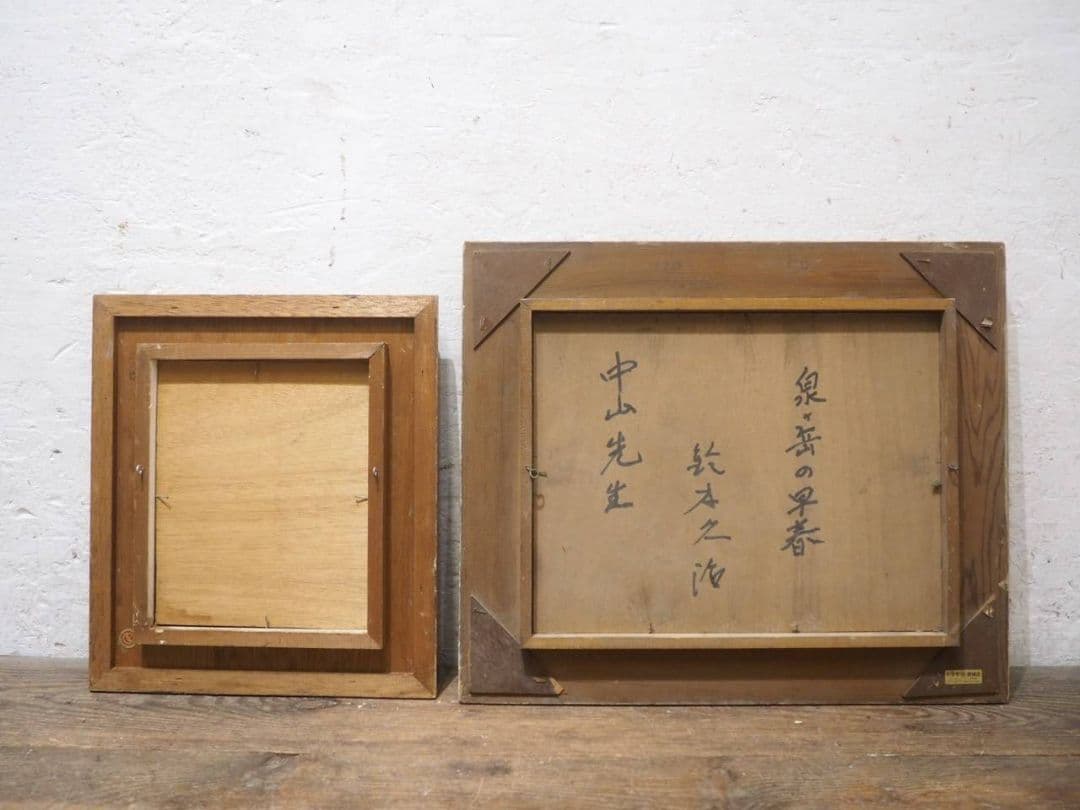 泉ヶ岳の早春
鈴木久治
中山先生